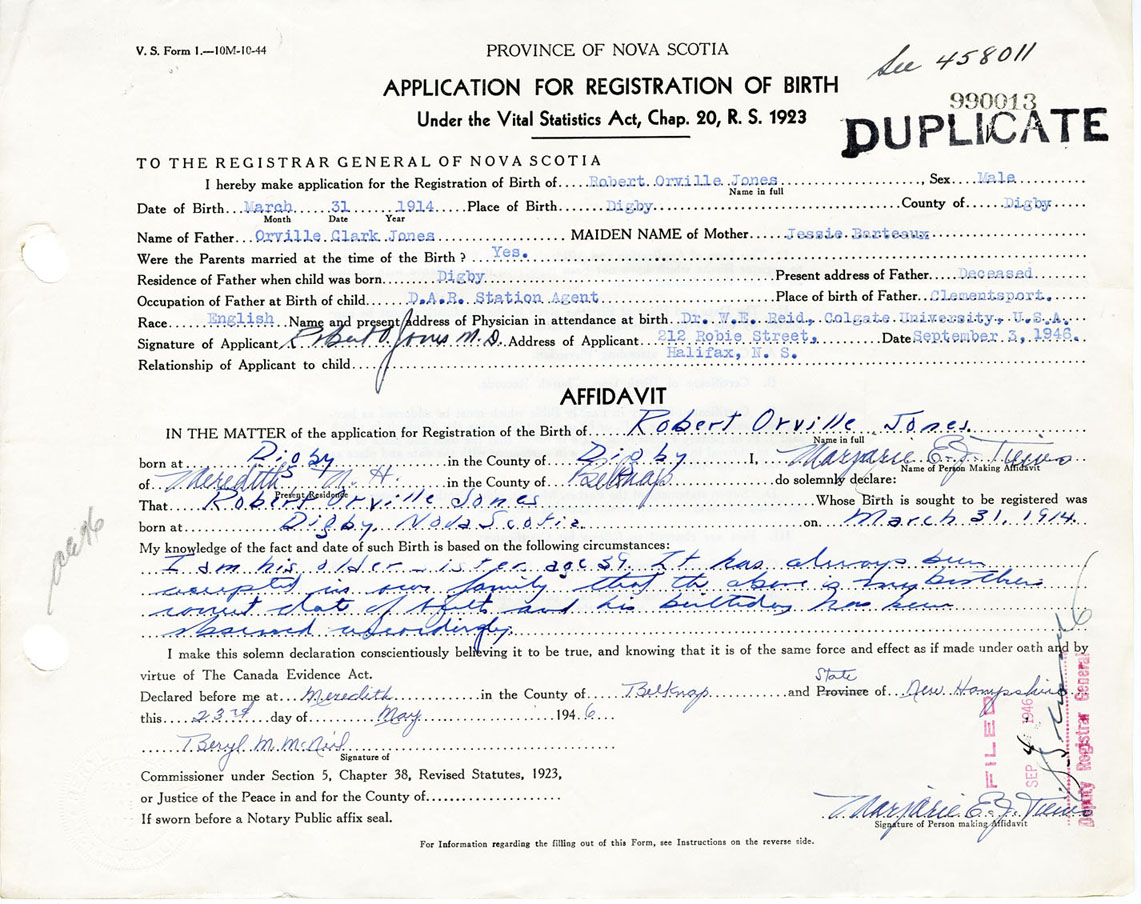 V. S. Form 1.—10M-10-44
PROVINCE OF NOVA SCOTIA
See 458011
APPLICATION FOR REGISTRATION OF BIRTH
990013
Under the Vital Statistics Act, Chap. 20, R. S. 1923
DUPLICATE
TO THE REGISTRAR GENERAL OF NOVA SCOTIA
I hereby make application for the Registration of Birth of Robert Orville Jones, Sex Male
Name in full
Date of Birth March 31 1914 Place of Birth Digby County of Digby
Month Date Year
Name of Father Orville Clark Jones MAIDEN NAME of Mother Jessie Barteaux
Were the Parents married at the time of the Birth? Yes.
Residence of Father when child was born Digby Present address of Father Deceased
Occupation of Father at Birth of child D.A.R. Station Agent Place of birth of Father Clementsport.
Race English Name and present Address of Physician in attendance at birth Dr. W.E. Reid, Colgate University, U.S.A.
Signature of Applicant Robert O. Jones M.D. Address of Applicant 212 Robie Street, Date September 3, 1946.
Halifax, N. S.
Relationship of Applicant to child
AFFIDAVIT
IN THE MATTER of the application for Registration of the Birth of Robert Orville Jones
Name in full
born at Digby in the County of Digby I, Marjorie E. J.
Name of Person Making Affidavit
of Meredith N. H. in the County of Belknap do solemnly declare:
Present Residence
That Robert Orville Jones Whose Birth is sought to be registered was
born at Digby, Nova Scotia on March 31, 1914
My knowledge of the fact and date of such Birth is based on the following circumstances:
I am his older sister age 39. It has always been
accepted in our family that the above is my brothers
correct date of birth and his birthday has been
observed accordingly
I make this solemn declaration conscientiously believing it to be true, and knowing that it is of the same force and effect as if made under oath and by
virtue of The Canada Evidence Act.
State
Declared before me at Meredith in the County of Belknap and Province of New Hampshire
this 23rd day of May 1946
Beryl M.
Signature of
Commissioner under Section 5, Chapter 38, Revised Statutes, 1923,
or Justice of the Peace in and for the County of
If sworn before a Notary Public affix seal.
FILED
SEP 4 1946
Deputy Registrar General
Marjorie E. J.
Signature of Person making Affidavit
For Information regarding the filling out of this Form, see Instructions on the reverse side.